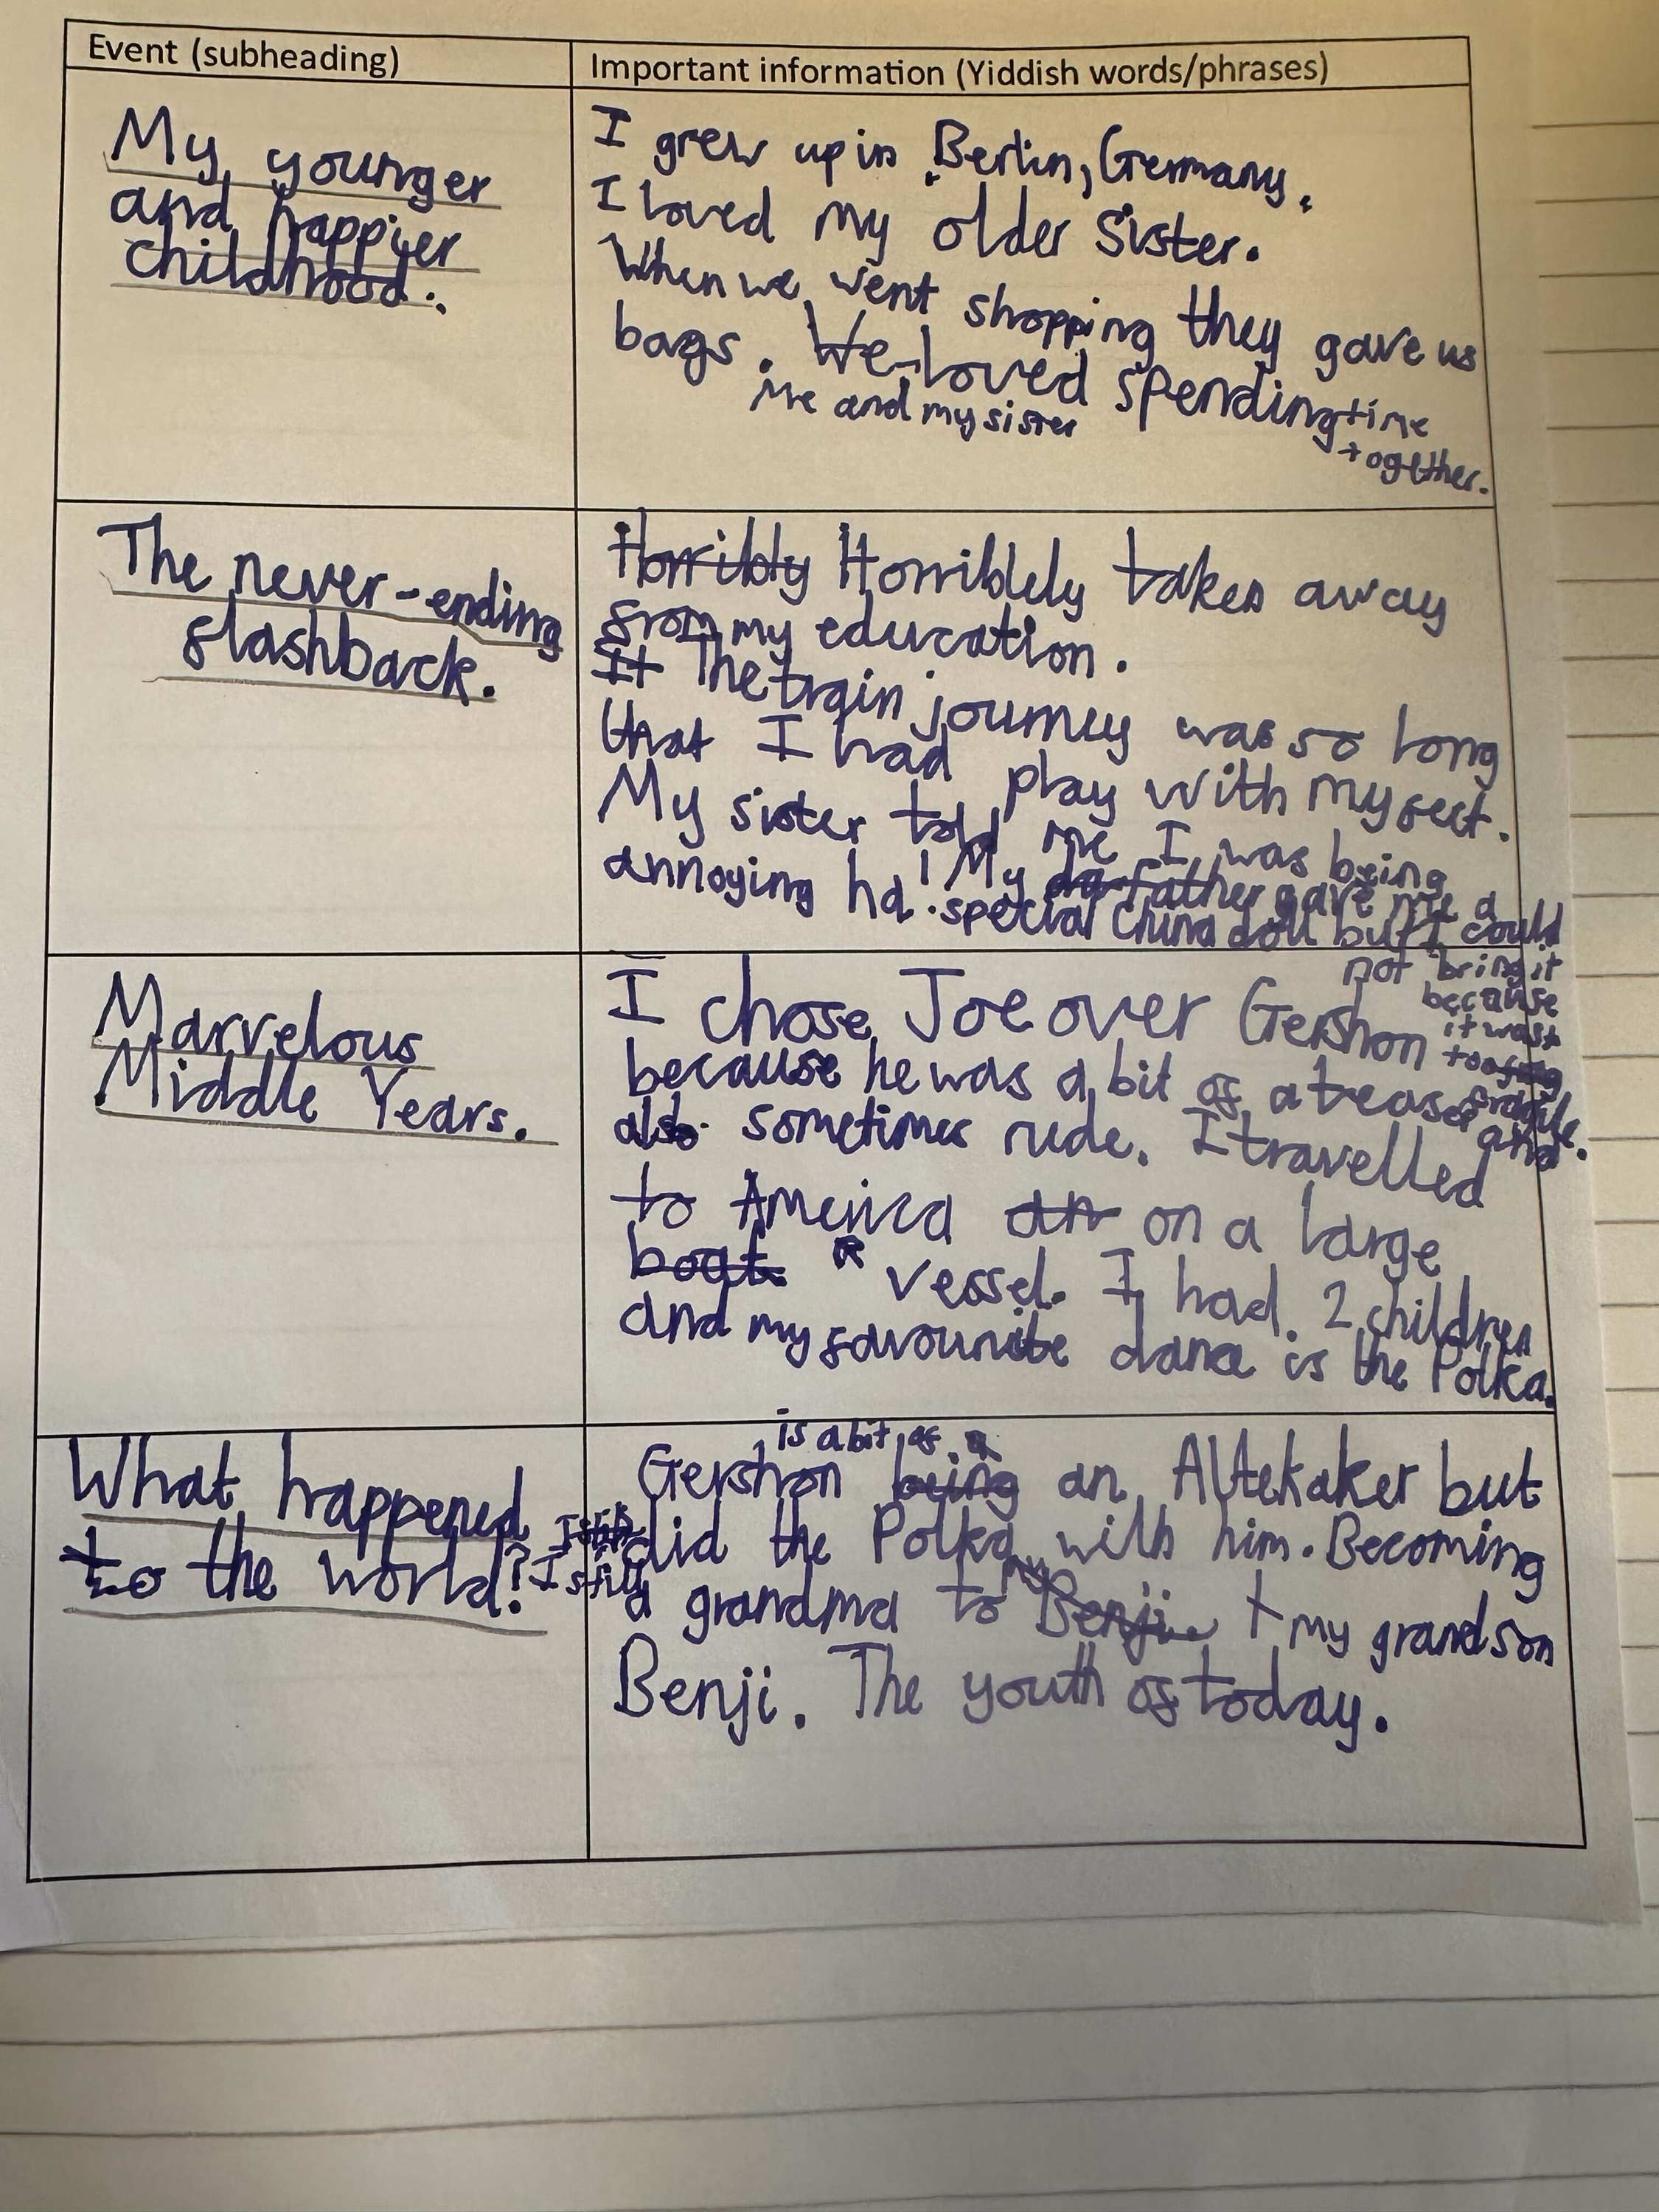 Event (subheading)
Important information (Yiddish words/phrases)
My younger
and happier
childhood.
I grew up in Berlin, Germany.
I loved my older sister.
When we went shopping they gave us
bags. We loved spending time
me and my sister
together.
The never-ending
flashback.
Horribly Horriblely taken away
from my education.
It The train journey was so long
that I had play with my feet.
My sister told me I was being
annoying ha! My father gave me a
special china doll but I could
not bring it
because
it was
too
fragile.
Marvelous
Middle Years.
I chose Joe over Gershon
because he was a bit of a teaser and
also sometimes rude. I travelled
to America an on a large
boat. vessel. I had 2 children
and my favourite dance is the Polka.
What happened
to the world?
is a bit of a
Gershon being an Altekaker but
I still did the Polka with him. Becoming
a grandma to my Benji + my grandson
Benji. The youth of today.